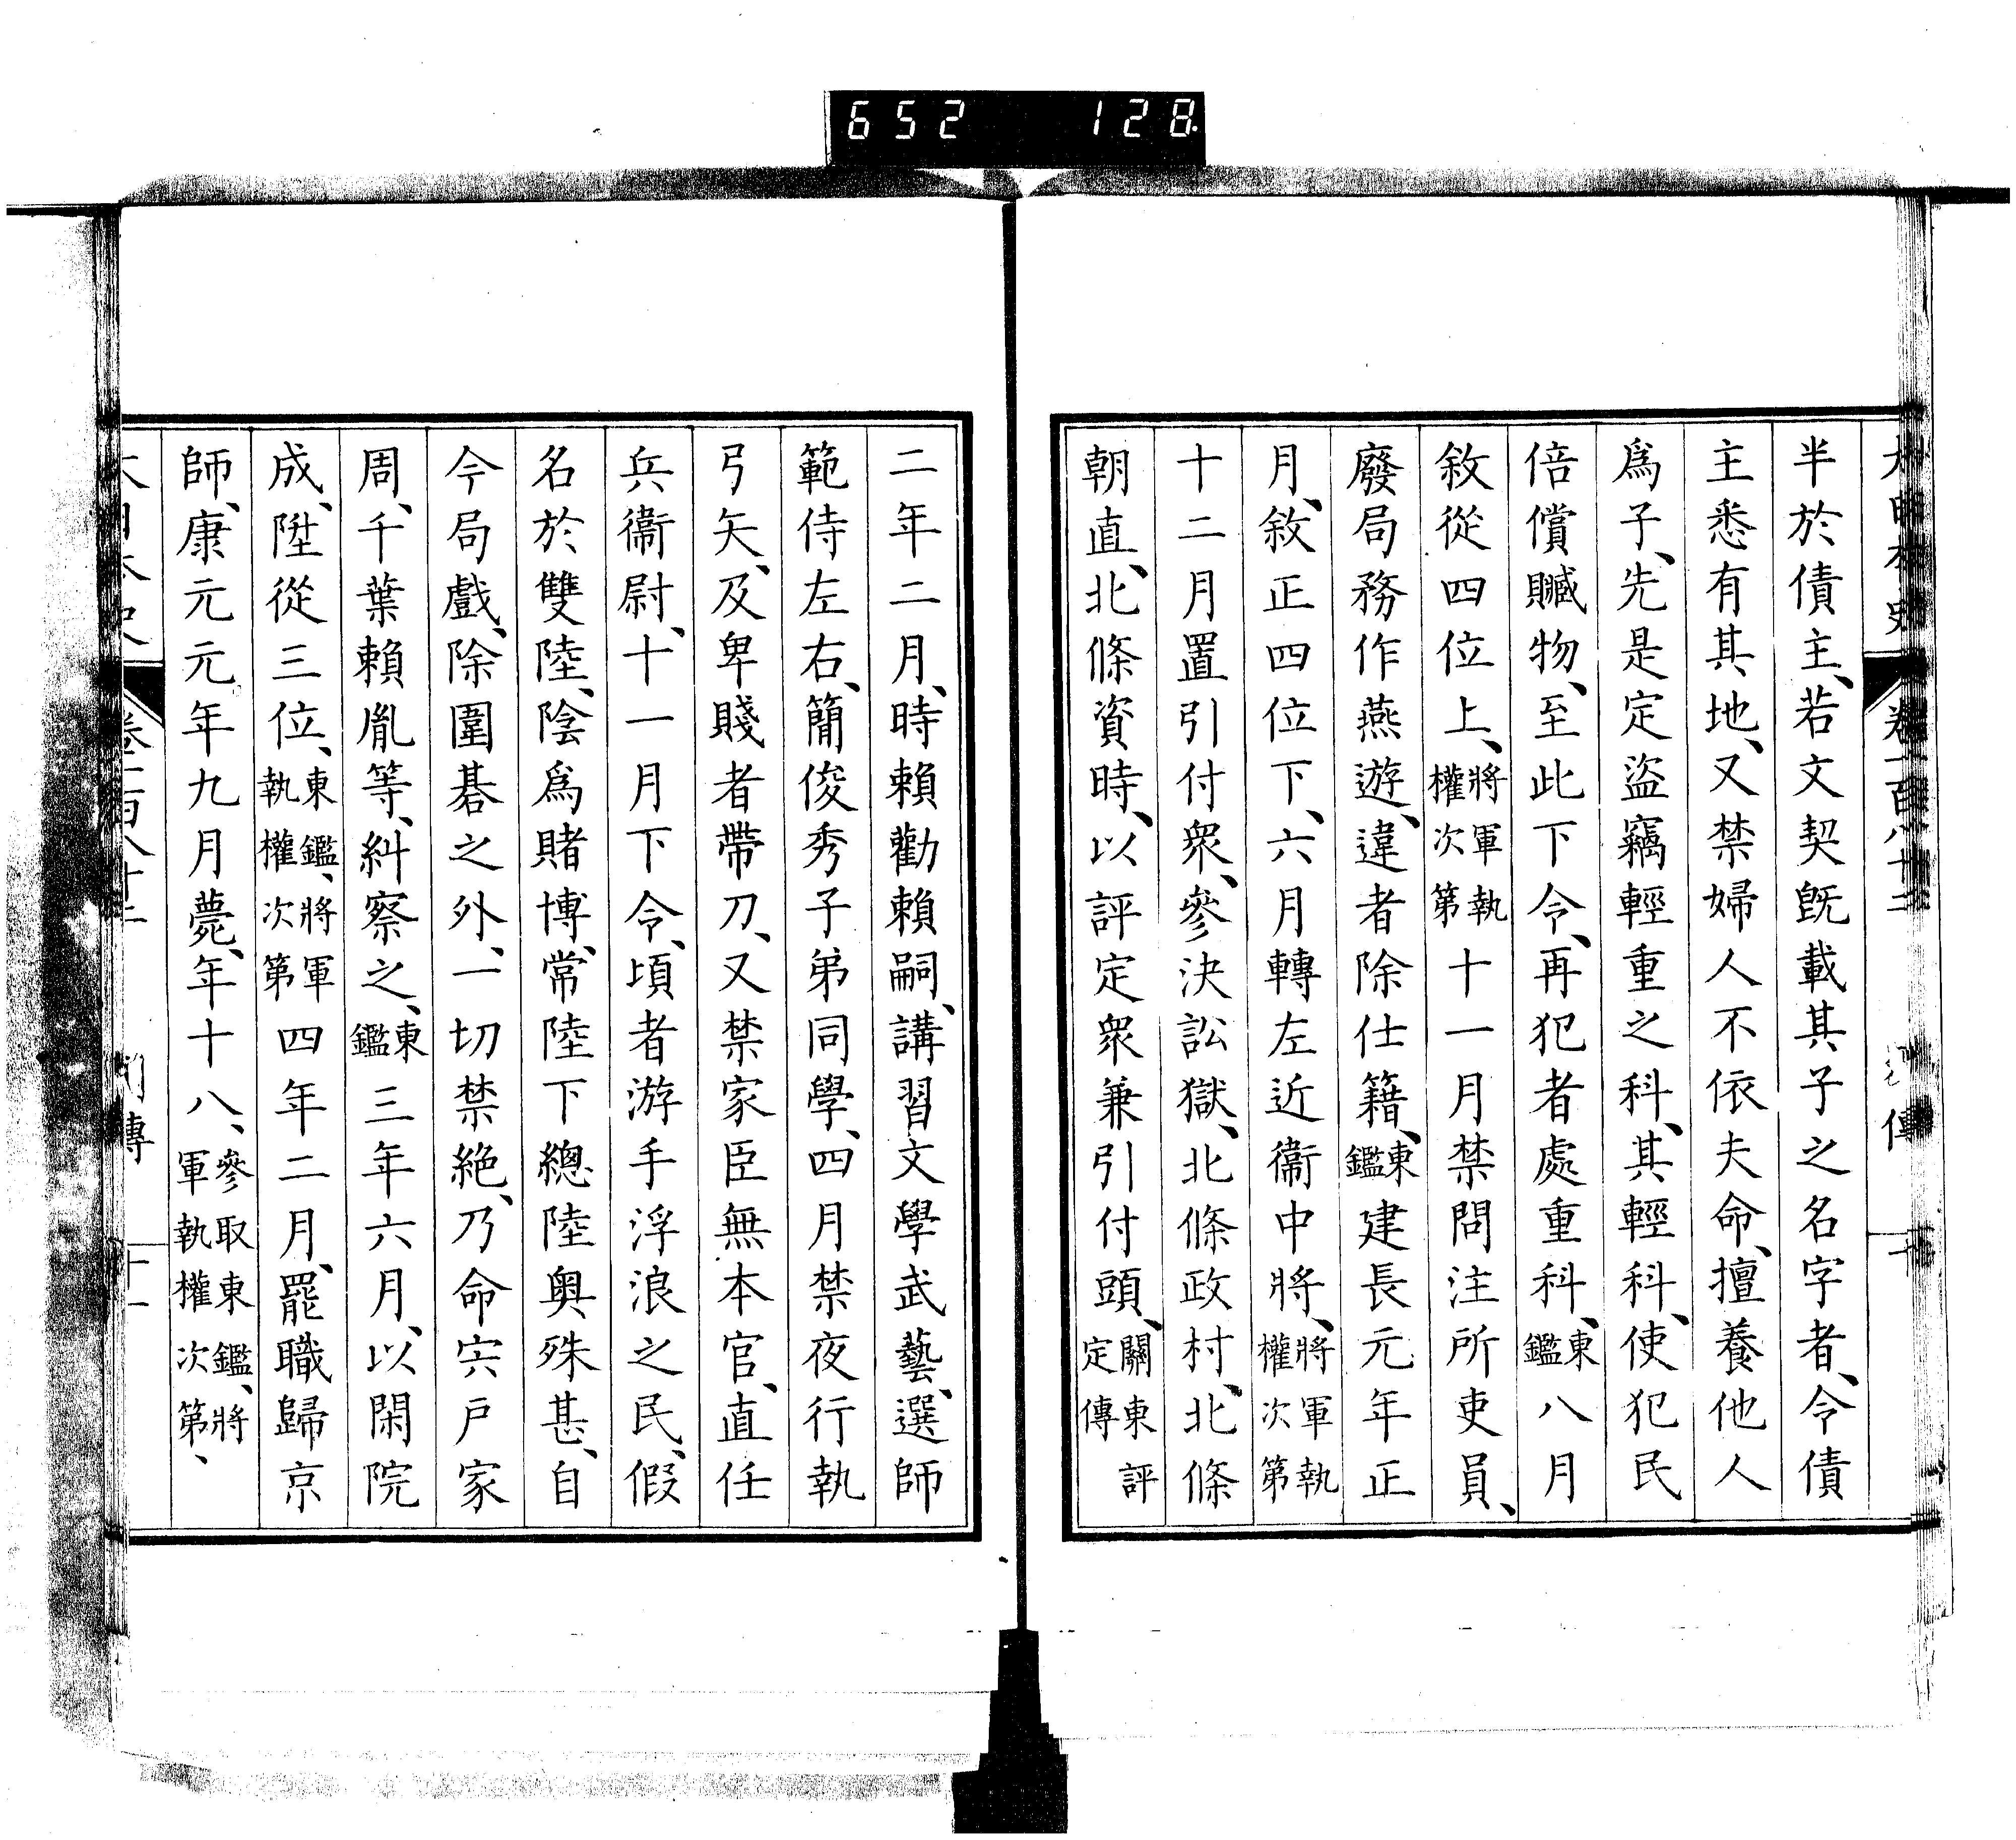 652 128
大日本史 卷一百八十二 傳 十
半於債主、若文契既載其子之名字者、令債
主悉有其地、又禁婦人不依夫命、擅養他人
爲子、先是定盜竊輕重之科、其輕科、使犯民
倍償贓物、至此下令、再犯者處重科、東鑑八月
敘從四位上、將軍執權次第十一月禁問注所吏員、
廢局務作燕遊、違者除仕籍、東鑑建長元年正
月、敘正四位下、六月轉左近衞中將、將軍執權次第
十二月置引付衆、參決訟獄、北條政村、北條
朝直、北條資時、以評定衆兼引付頭、關東評定傳
二年二月、時賴勸賴嗣、講習文學武藝、選師
範侍左右、簡俊秀子弟同學、四月禁夜行執
弓矢、及卑賤者帶刀、又禁家臣無本官、直任
兵衞尉、十一月下令、頃者游手浮浪之民、假
名於雙陸、陰爲賭博、常陸下總陸奧殊甚、自
今局戲、除圍碁之外、一切禁絶、乃命宍戸家
周、千葉賴胤等、糾察之、東鑑三年六月、以閑院
成、陞從三位、東鑑、將軍執權次第四年二月、罷職歸京
師、康元元年九月薨、年十八、參取東鑑、將軍執權次第、
大日本史 卷一百八十二 列傳 十一